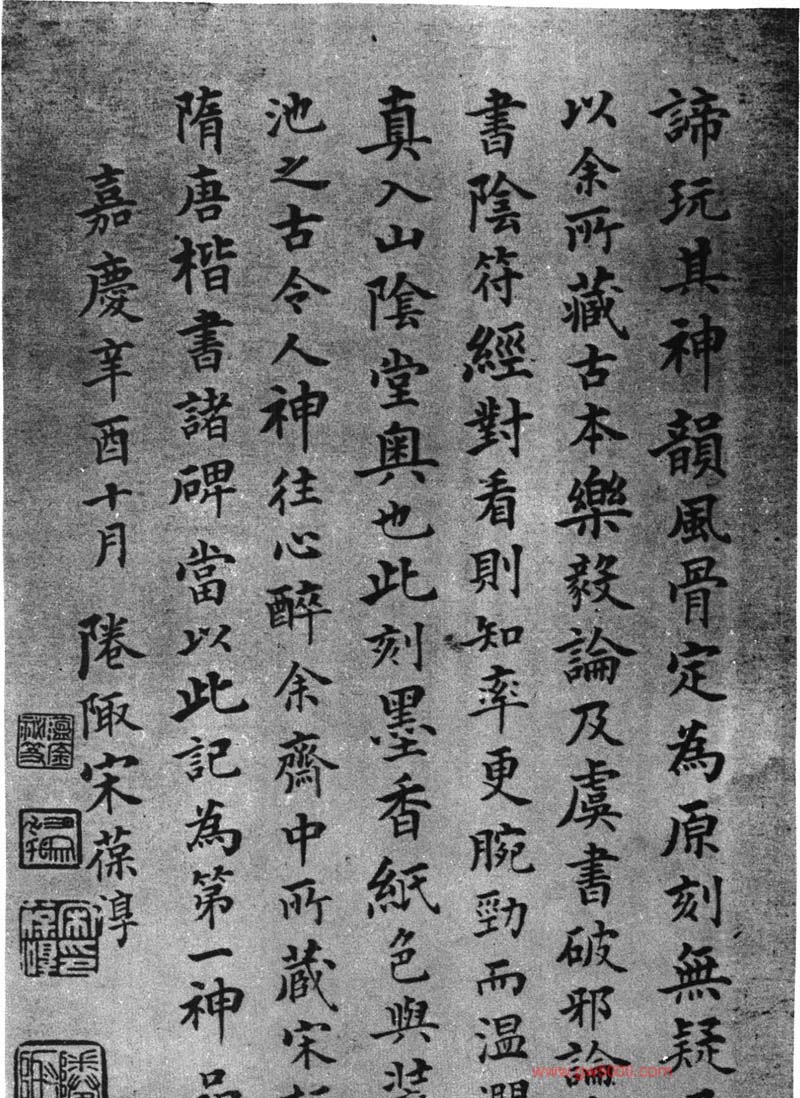 諦玩其神韻風骨定為原刻無疑
以余所藏古本樂毅論及虞書破邪論
書陰符經對看則知率更腕勁而溫潤
真入山陰堂奧也此刻墨香紙色與裝
池之古令人神往心醉余齋中所蔵宋
隋唐楷書諸碑當以此記為第一神品
嘉慶辛酉十月 陭陬宋葆淳
www.gw8000.com